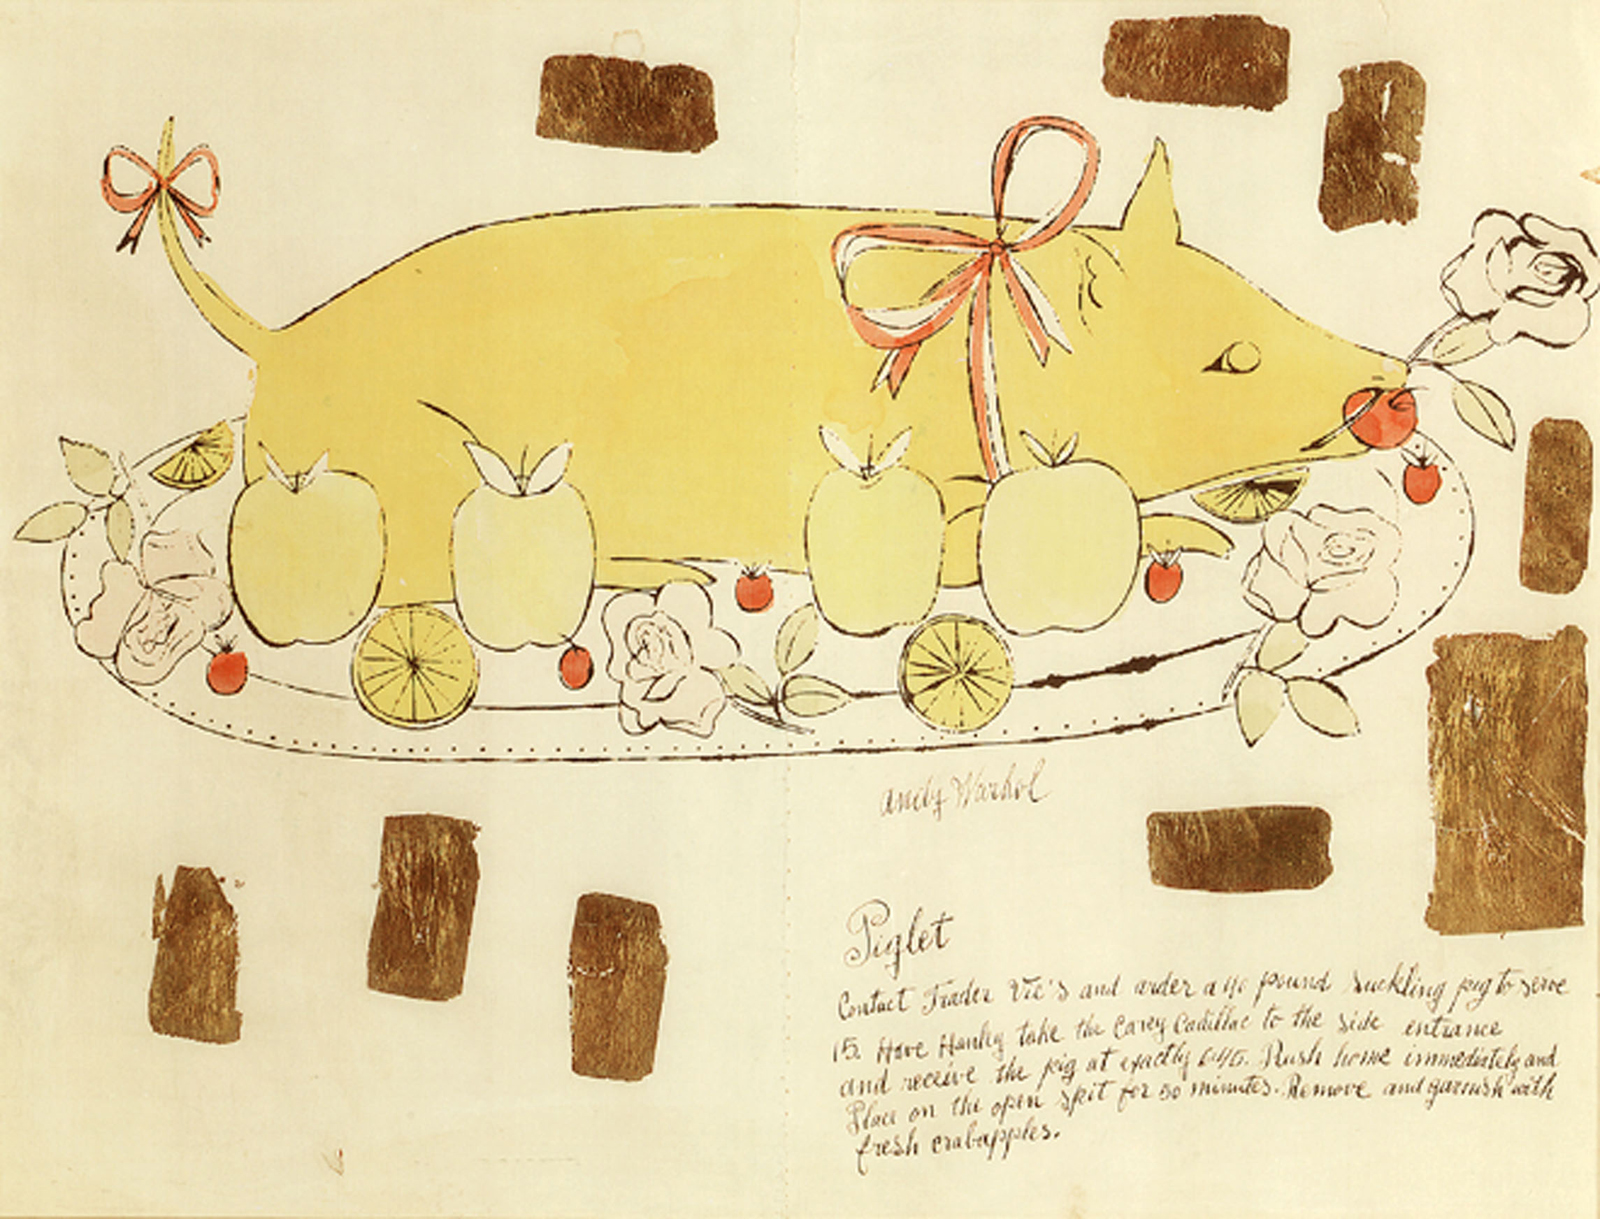 Andy Warhol
Piglet
Contact Trader Vic's and order a 40 pound suckling pig to serve
15. Have Hanley take the Carey Cadillac to the side entrance
and receive the pig at exactly 6:45. Rush home immediately and
Place on the open spit for 50 minutes. Remove and garnish with
fresh crabapples.